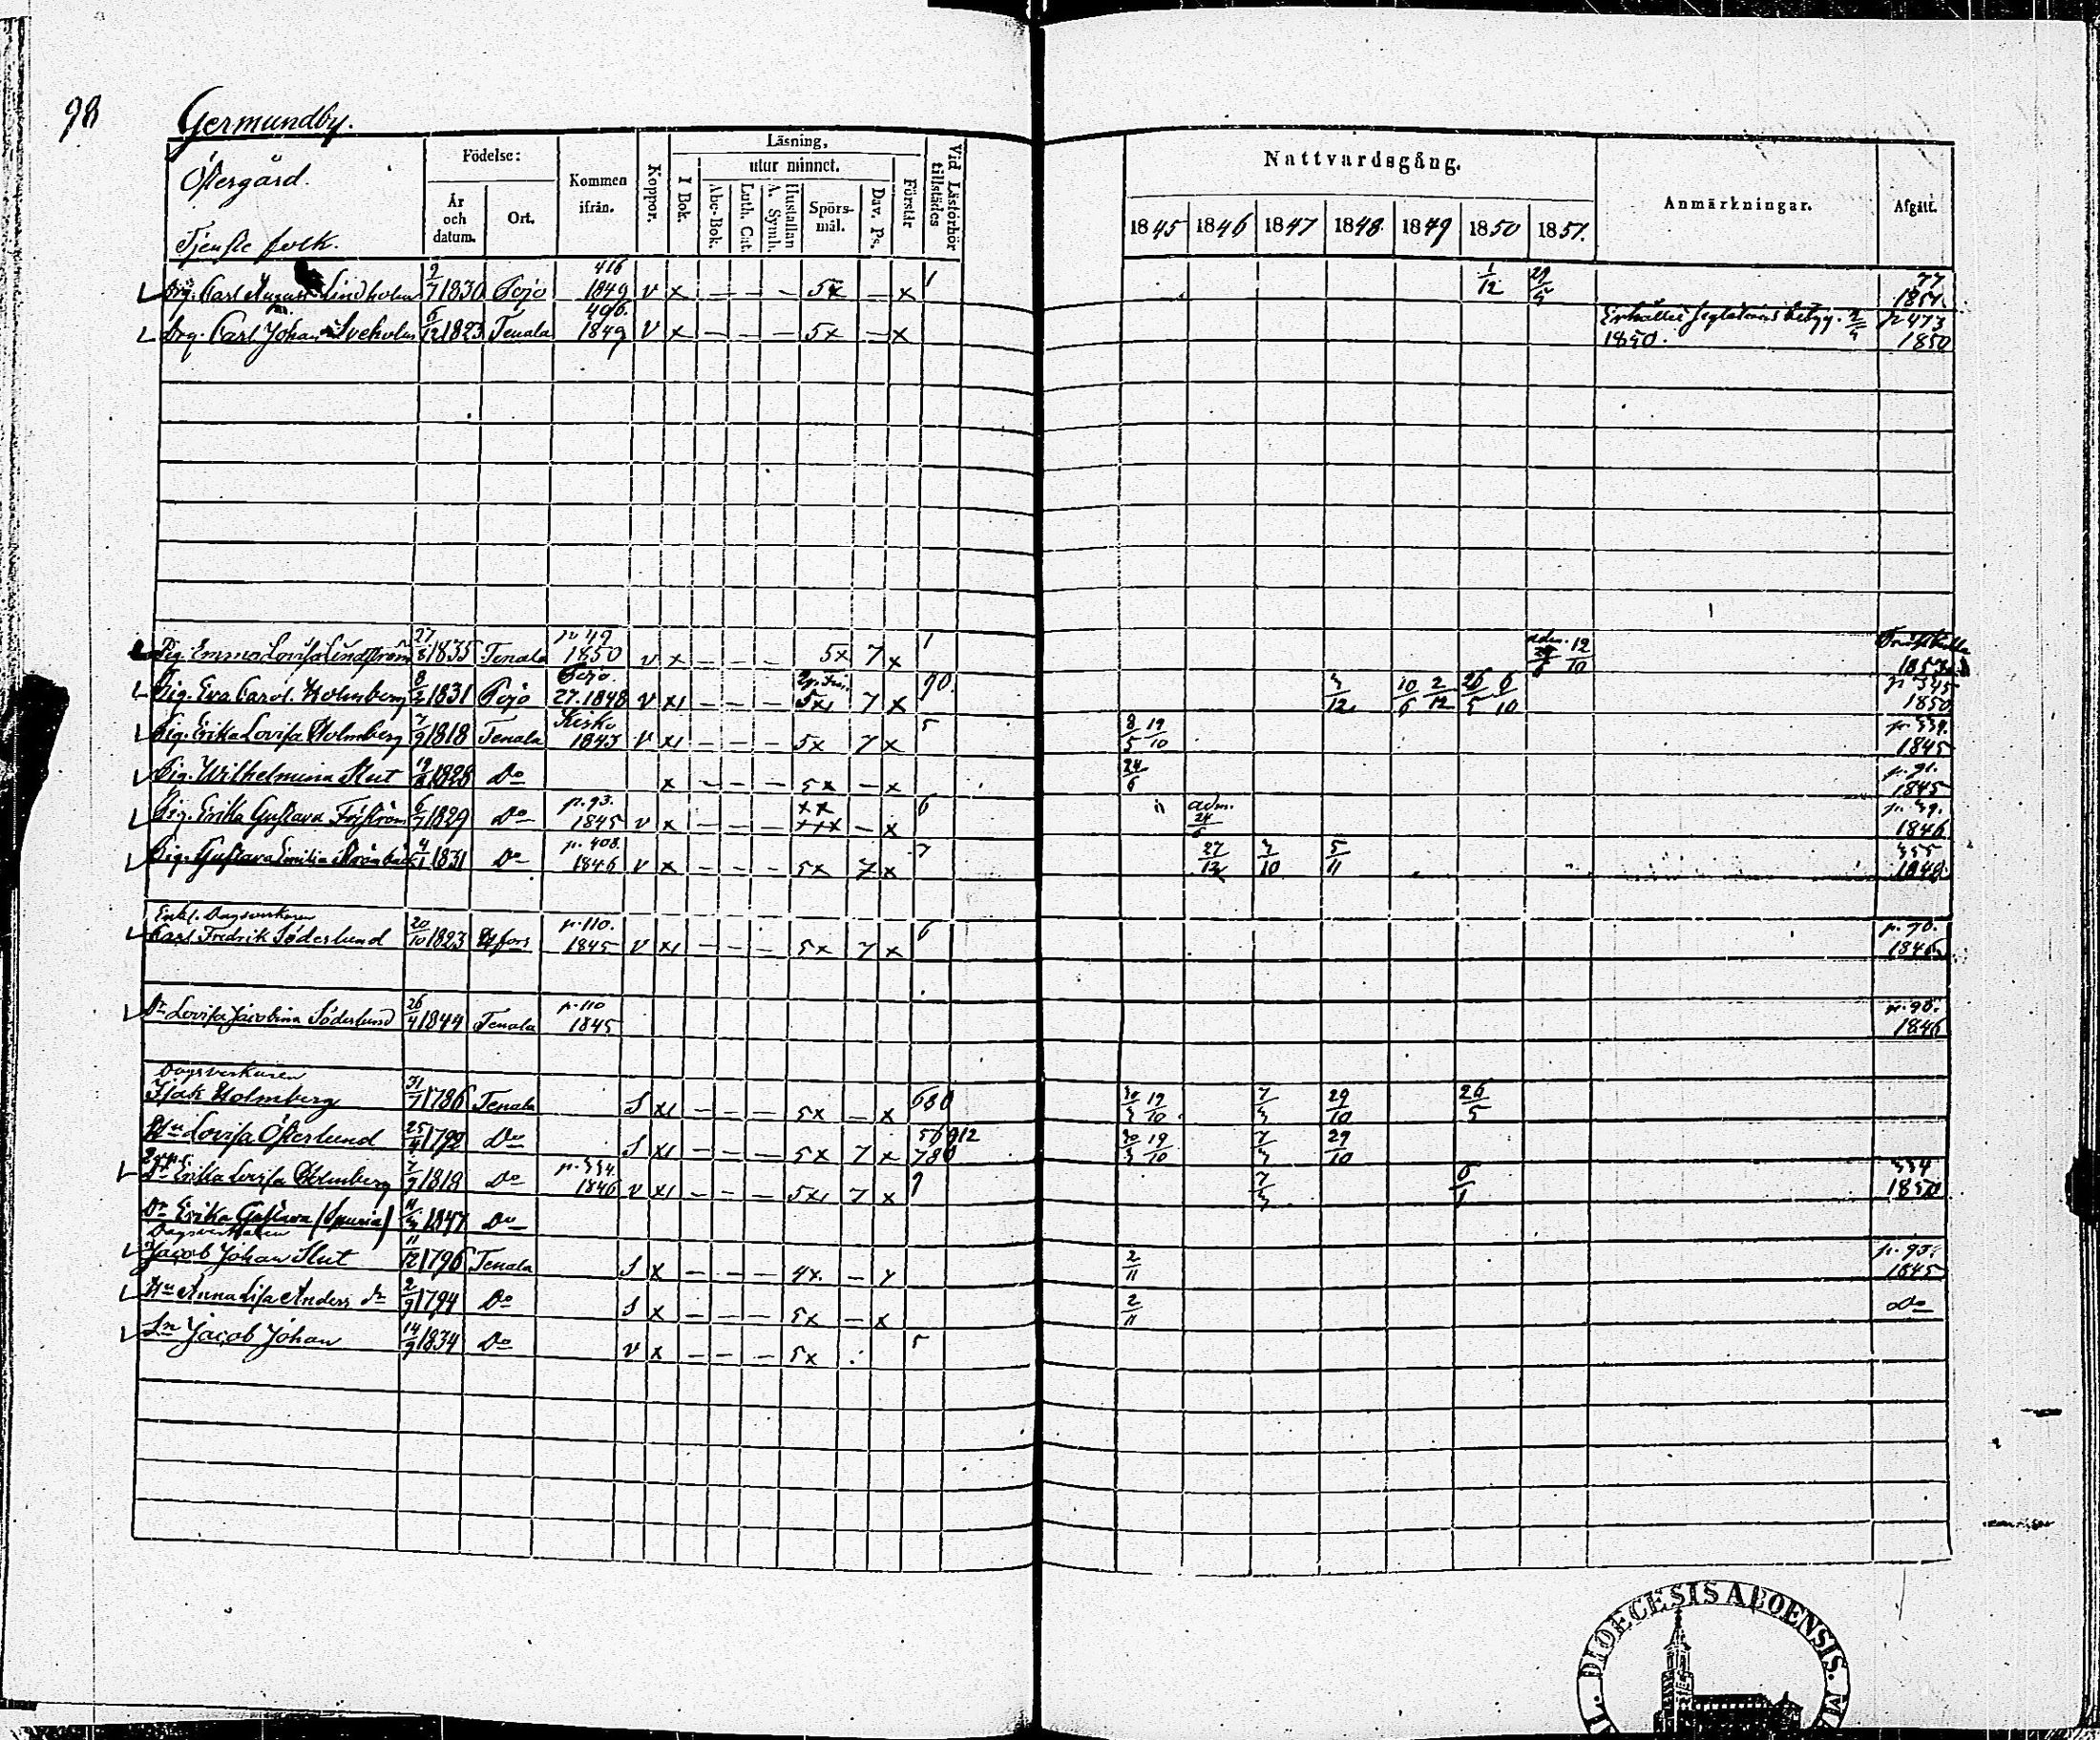 98
Germundby.
Östergård.
Tjenste folk.
Födelse:
År och datum.
Ort.
Kommen ifrån.
Koppor.
Läsning,
I Bok.
utur minnet.
Abc-Bok.
Luth. Cat.
Hustaflan A. Symb.
Spörsmål.
Dav. Ps.
Förstår
Vid Läsförhör tillstädes
Nattvardsgång.
1845 1846 1847 1848. 1849 1850 1851.
Anmärkningar.
Afgått.
Drg. Carl August Lindholm 2/7 1830 Pojo 416 1849 v x – – – 5x – x 1 1/12 29/5 77 1851.
Drg. Carl Johan Sveholm 6/12 1823 Tenala 496. 1849 v x – – – 5x – x 1850. p 473 1850
Pig. Emma Lovisa Lindström 27/8 1835 Tenala p 49 1850 v x – – – 5x 7 x 1 adm. 12/10
Pig. Eva Carol. Holmberg 8/2 1831 Pojo Pojo. 27. 1848 v x – – – 5x 7 x 90. 3/12 10/6 2/12 26/5 6/10 p 345 1850
Pig. Erika Lovisa Holmberg 7/9 1818 Tenala Kisko 1843 v x – – – 5x 7 x 5 8/5 19/10 p. 339. 1845
Pig. Wilhelmina Slut 1828 Do x – – – 5x – x 24/6 p. 91. 1845
Pig. Erika Gustava Friström 6/7 1829 Do p. 93. 1845 v x – – – xx xxx – x 6 " adm. 24/6 p. 39. 1846
Pig. Gustava Emilia Strömbäck 4/1 1831 Do p. 408. 1846 v x – – – 5x 7 x 7 27/12 3/10 5/11 355 1848.
Enkl. Dagsverkaren
Carl Fredrik Söderlund 20/10 1823 Hfors p. 110. 1845 v x – – – 5x 7 x 6 p. 70. 1846
Dr Lovisa Jacobina Söderlund 26/4 1844 Tenala p. 110 1845 p. 96. 1846
Dagsverkaren
Isak Holmberg 31/7 1786 Tenala S x – – – 5x – x 680 30/3 19/10 7/3 29/10 26/5
Hu Lovisa Österlund 25/4 1792 Do S x – – – 5x 7 x 56912 780 30/3 19/10 7/3 29/10
Dr Erika Lovisa Holmberg 7/9 1818 Do p. 334. 1846 v x – – – 5x 7 x 9 7/3 6/1 334 1850
Dr Erika Gustava (Spuria) 11/3 1847 Do
Dagsverkaren
Jacob Johan Slut 11/12 1796 Tenala S x – – – 4x. – x 2/11 p. 93. 1845
Hu Anna Lisa Anders dr 2/9 1794 Do S x – – – 5x – x 2/11 Do
Sn Jacob Johan 14/9 1834 Do v x – – – 5x 5
DIOECESIS ABOENSIS.